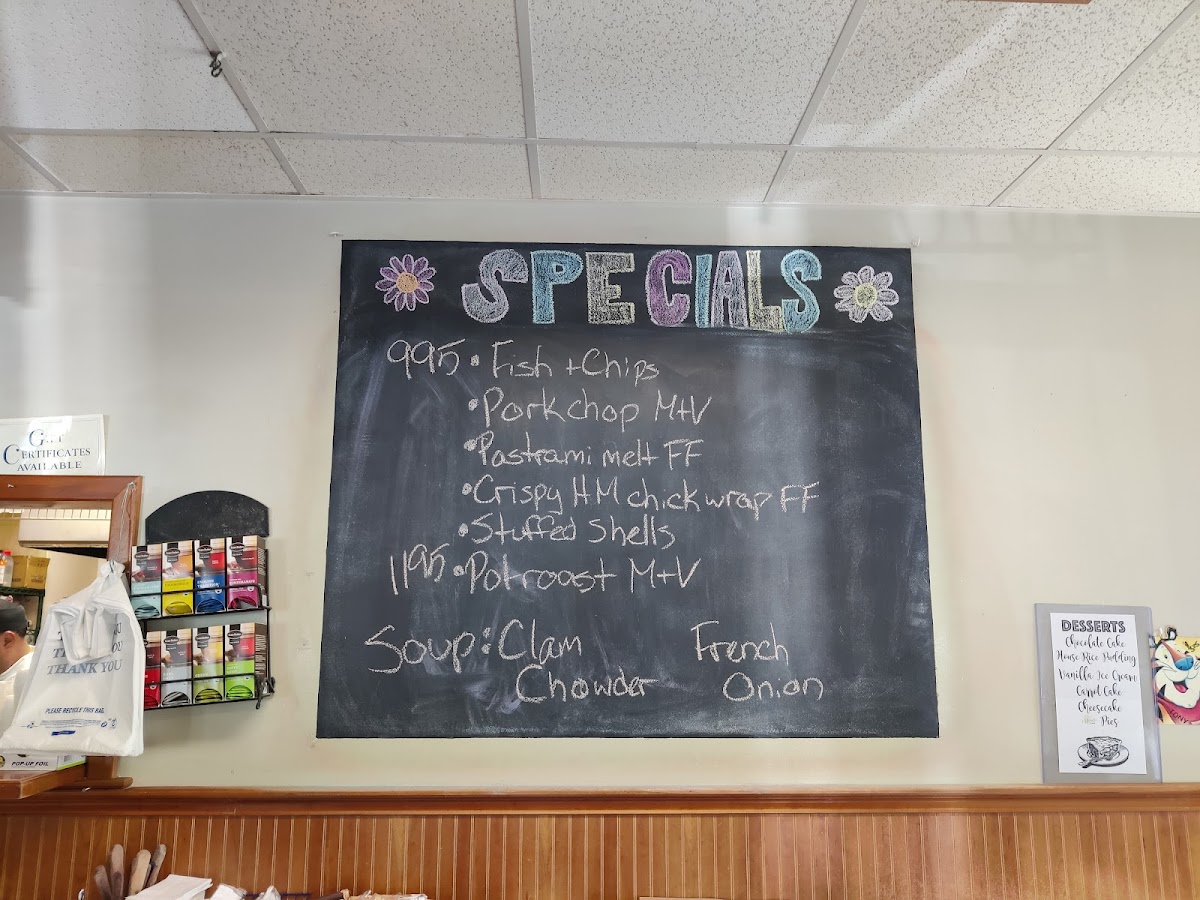 SPECIALS
995 • Fish + Chips
• Pork chop M+V
• Pastrami melt FF
• Crispy HM chick wrap FF
• Stuffed Shells
1195 • Pot roast M+V
Soup: Clam Chowder
French Onion
CERTIFICATES
AVAILABLE
THANK YOU
PLEASE RECYCLE THIS BAG
POP-UP FOIL
DESSERTS
Chocolate Cake
House Rice Pudding
Vanilla Ice Cream
Carrot Cake
Cheesecake
Pies